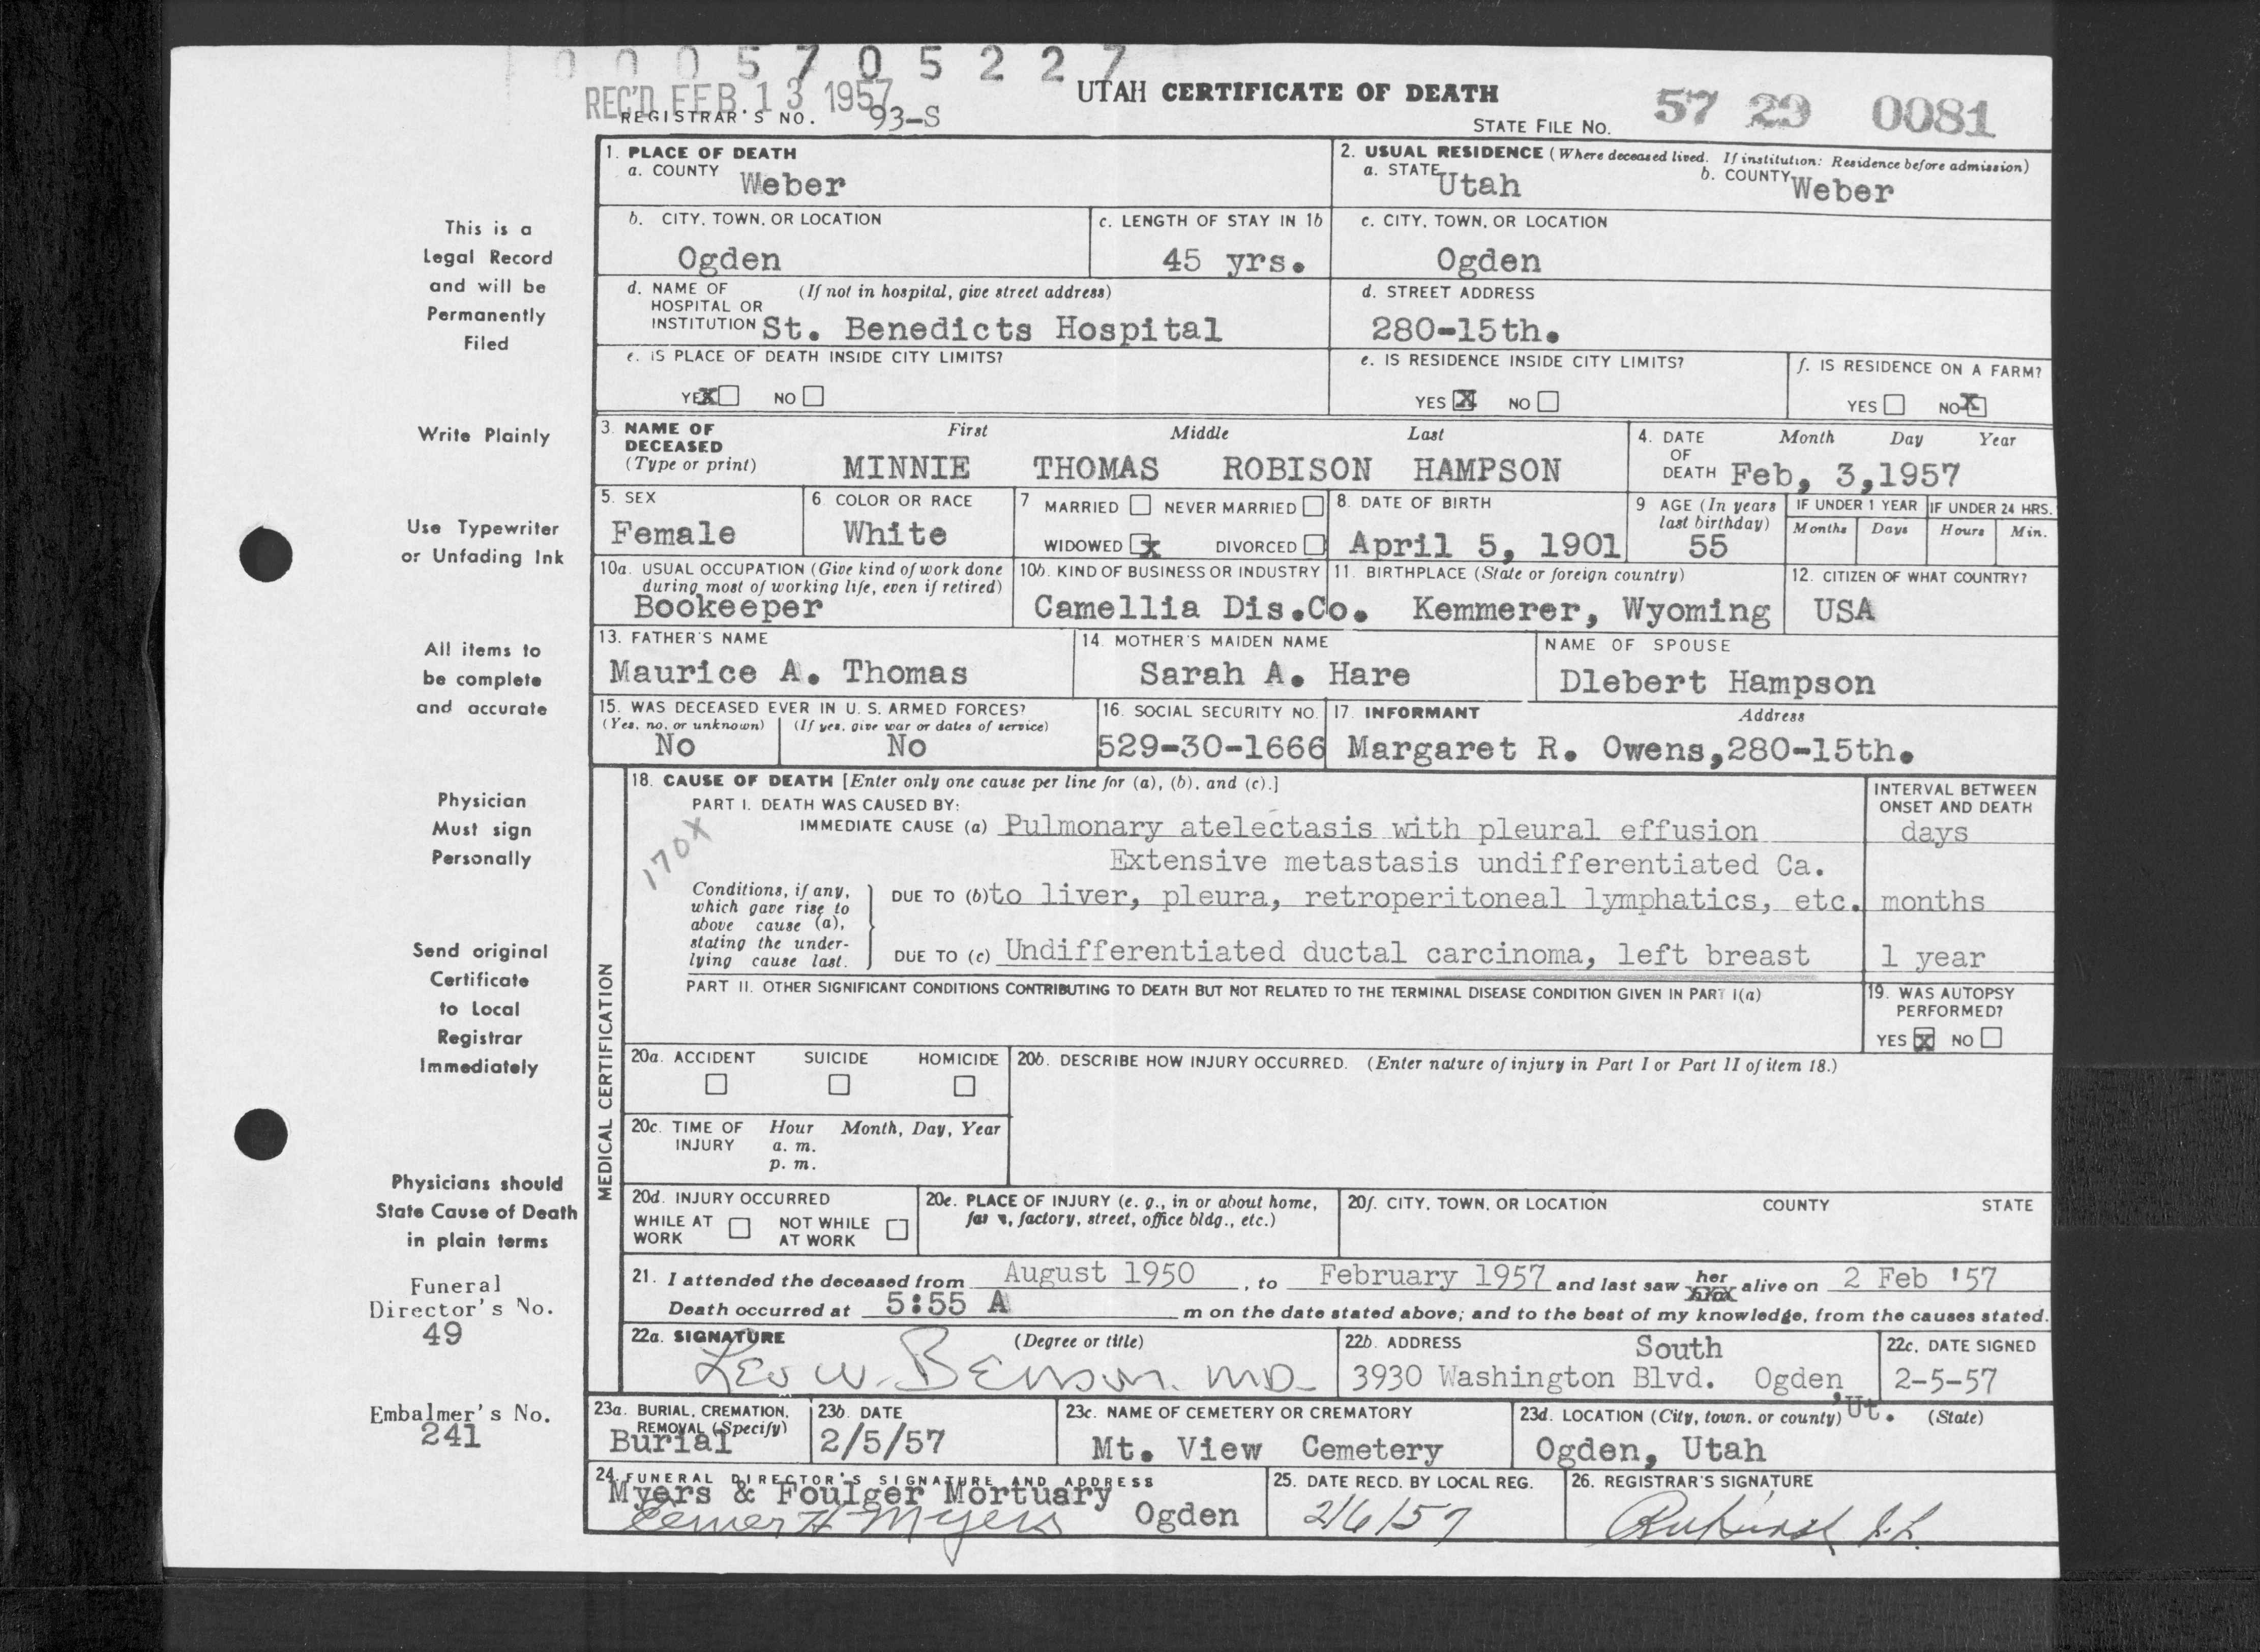 0005705227
REC'D FEB. 13 1957
UTAH CERTIFICATE OF DEATH
REGISTRAR'S NO. 93-S
STATE FILE NO. 57 29 0081
This is a
Legal Record
and will be
Permanently
Filed
Write Plainly
Use Typewriter
or Unfading Ink
All items to
be complete
and accurate
Physician
Must sign
Personally
Send original
Certificate
to Local
Registrar
Immediately
Physicians should
State Cause of Death
in plain terms
Funeral
Director's No.
49
Embalmer's No.
241
1. PLACE OF DEATH
a. COUNTY Weber
2. USUAL RESIDENCE (Where deceased lived. If institution: Residence before admission)
a. STATE Utah b. COUNTY Weber
b. CITY, TOWN, OR LOCATION
Ogden
c. LENGTH OF STAY IN 1b
45 yrs.
c. CITY, TOWN, OR LOCATION
Ogden
d. NAME OF (If not in hospital, give street address)
HOSPITAL OR
INSTITUTION St. Benedicts Hospital
d. STREET ADDRESS
280-15th.
e. IS PLACE OF DEATH INSIDE CITY LIMITS?
YES X NO
e. IS RESIDENCE INSIDE CITY LIMITS?
YES X NO
f. IS RESIDENCE ON A FARM?
YES NO X
3. NAME OF DECEASED (Type or print) First Middle Last
MINNIE THOMAS ROBISON HAMPSON
4. DATE OF DEATH Month Day Year
Feb, 3,1957
5. SEX
Female
6. COLOR OR RACE
White
7 MARRIED NEVER MARRIED
WIDOWED X DIVORCED
8. DATE OF BIRTH
April 5, 1901
9 AGE (In years last birthday)
55
IF UNDER 1 YEAR IF UNDER 24 HRS.
Months Days Hours Min.
10a. USUAL OCCUPATION (Give kind of work done
during most of working life, even if retired)
Bookeeper
10b. KIND OF BUSINESS OR INDUSTRY
Camellia Dis.Co.
11. BIRTHPLACE (State or foreign country)
Kemmerer, Wyoming
12. CITIZEN OF WHAT COUNTRY?
USA
13. FATHER'S NAME
Maurice A. Thomas
14. MOTHER'S MAIDEN NAME
Sarah A. Hare
NAME OF SPOUSE
Dlebert Hampson
15. WAS DECEASED EVER IN U. S. ARMED FORCES?
(Yes, no, or unknown) (If yes, give war or dates of service)
No No
16. SOCIAL SECURITY NO.
529-30-1666
17. INFORMANT Address
Margaret R. Owens,280-15th.
MEDICAL CERTIFICATION
18. CAUSE OF DEATH [Enter only one cause per line for (a), (b), and (c).]
INTERVAL BETWEEN
ONSET AND DEATH
PART I. DEATH WAS CAUSED BY:
170X
IMMEDIATE CAUSE (a) Pulmonary atelectasis with pleural effusion days
Extensive metastasis undifferentiated Ca.
Conditions, if any,
which gave rise to
above cause (a),
stating the under-
lying cause last.
DUE TO (b) to liver, pleura, retroperitoneal lymphatics, etc. months
DUE TO (c) Undifferentiated ductal carcinoma, left breast 1 year
PART II. OTHER SIGNIFICANT CONDITIONS CONTRIBUTING TO DEATH BUT NOT RELATED TO THE TERMINAL DISEASE CONDITION GIVEN IN PART I(a)
19. WAS AUTOPSY
PERFORMED?
YES X NO
20a. ACCIDENT SUICIDE HOMICIDE
20b. DESCRIBE HOW INJURY OCCURRED. (Enter nature of injury in Part I or Part II of item 18.)
20c. TIME OF INJURY Hour Month, Day, Year
a. m.
p. m.
20d. INJURY OCCURRED
WHILE AT WORK NOT WHILE AT WORK
20e. PLACE OF INJURY (e. g., in or about home,
factory, street, office bldg., etc.)
20f. CITY, TOWN, OR LOCATION COUNTY STATE
21. I attended the deceased from August 1950, to February 1957 and last saw her alive on 2 Feb '57
Death occurred at 5:55 A m on the date stated above; and to the best of my knowledge, from the causes stated.
22a. SIGNATURE (Degree or title)
Leo W. Benson. MD-
22b. ADDRESS South
3930 Washington Blvd. Ogden, Ut.
22c. DATE SIGNED
2-5-57
23a. BURIAL, CREMATION,
REMOVAL (Specify)
Burial
23b. DATE
2/5/57
23c. NAME OF CEMETERY OR CREMATORY
Mt. View Cemetery
23d. LOCATION (City, town, or county) (State)
Ogden, Utah
24. FUNERAL DIRECTOR'S SIGNATURE AND ADDRESS
Myers & Foulger Mortuary
Elmer H Myers Ogden
25. DATE RECD. BY LOCAL REG.
2/6/57
26. REGISTRAR'S SIGNATURE